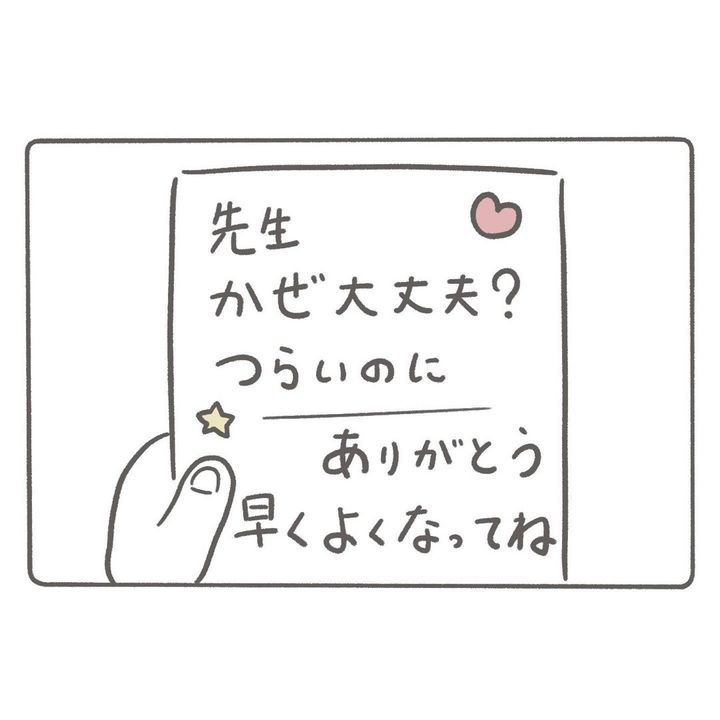 先生
かぜ大丈夫?
つらいのに
ありがとう
早くよくなってね